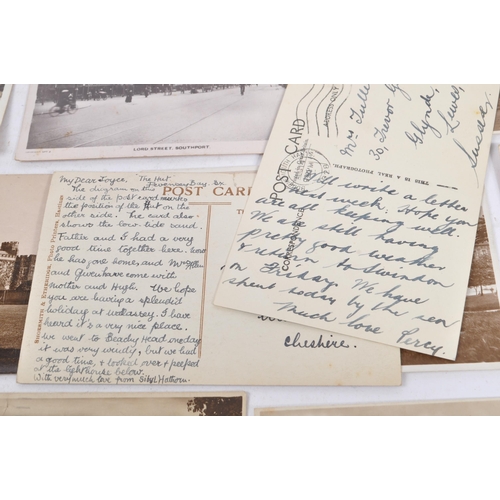 LORD STREET. SOUTHPORT
My Dear Joyce. The Hut
Pevensey Bay. Sx.
The diagram on this
side of the post card marks
the position of the Hut on the
other side. The card also
shows the low tide sand.
Father and I had a very
good time together here. Now
he has gone home, and Mrs
and Gwenhave come with
mother and Hugh. We hope
you are having a splendid
holiday at Wallasey. I have
heard it's a very nice place.
We went to Beachy Head on day
it was very windy, but we had
a good time, & looked over & peeped
at its lighthouse below.
With very much love from Sibyl
POST CAR
Cheshire.
POST CARD
CORRESPONDENCE
THIS IS A REAL PHOTOGRAPH.
Mrs Tulle
30, Trevor G
Glynde,
Lewes,
Sussex.
I'll write a letter
next week. Hope you
are all keeping well.
We are still having
pretty good weather
& return to Swindon
on Friday. We have
spent today by the sea
Much love
Percy.